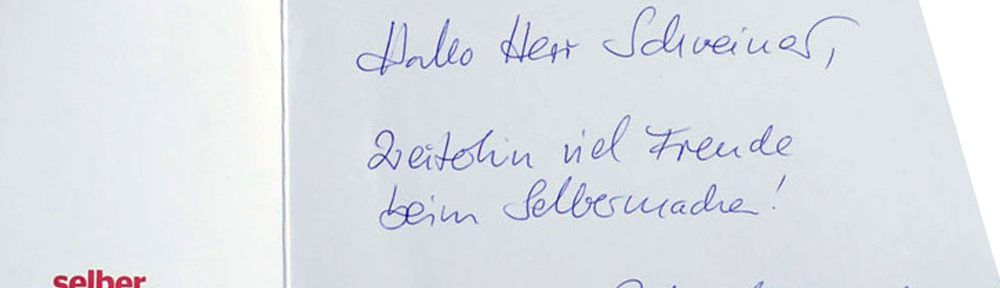 Hallo Herr Schweiner,
Weiterhin viel Freude
beim Selbermachen!
selber